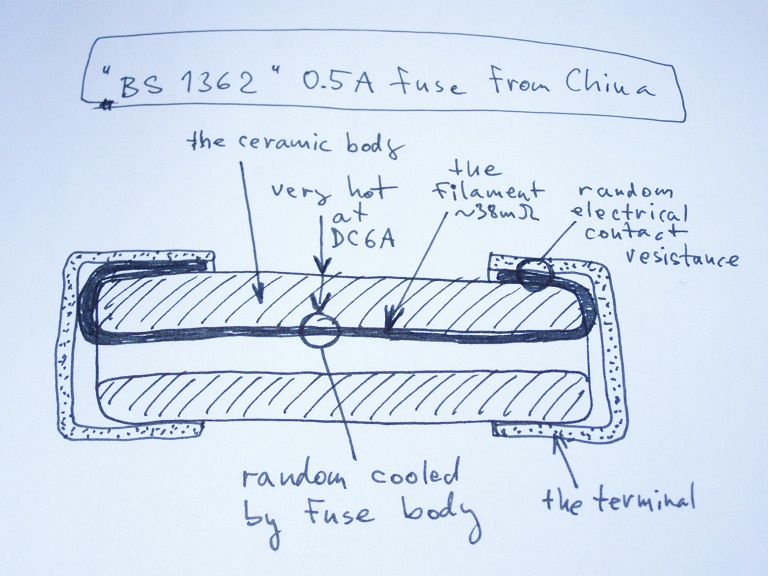 "BS 1362" 0.5A fuse from China
the ceramic body
very hot
at
DC6A
the
filament
~38mΩ
random
electrical
contact
resistance
random cooled
by fuse body
the terminal